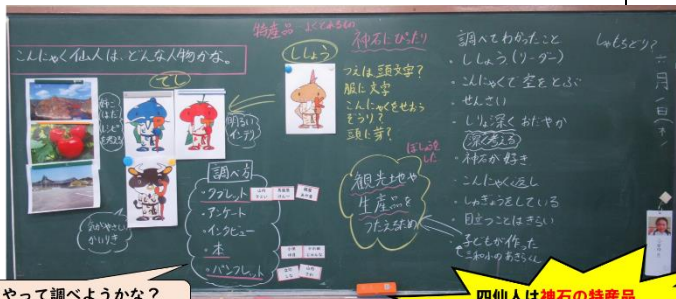 こんにゃく仙人は、どんな人物かな。
特産品 よくとれるもの
神石にぴったり
ししょう
でし
つえは頭文字?
服に文字
こんにゃくをせおう
ぞうり?
頭に芽?
明るい
インテリ
気がやさしい
かいりき
調べ方
・タブレット
・アンケート
・インタビュー
・本
・パンフレット
ほしょうをした
観光地や
生産品を
つたえるため
調べてわかったこと
・ししょう(リーダー)
・こんにゃくで空をとぶ
・せんさい
・しりょ深く おだやか
深く考える
・神石が好き
・こんにゃく返し
・しゅぎょうをしている
・目立つことはきらい
・子どもが作った
三和小のあきらくん
しゃちどり?
六月一日
やって調べようかな?
四仙人は神石の特産品